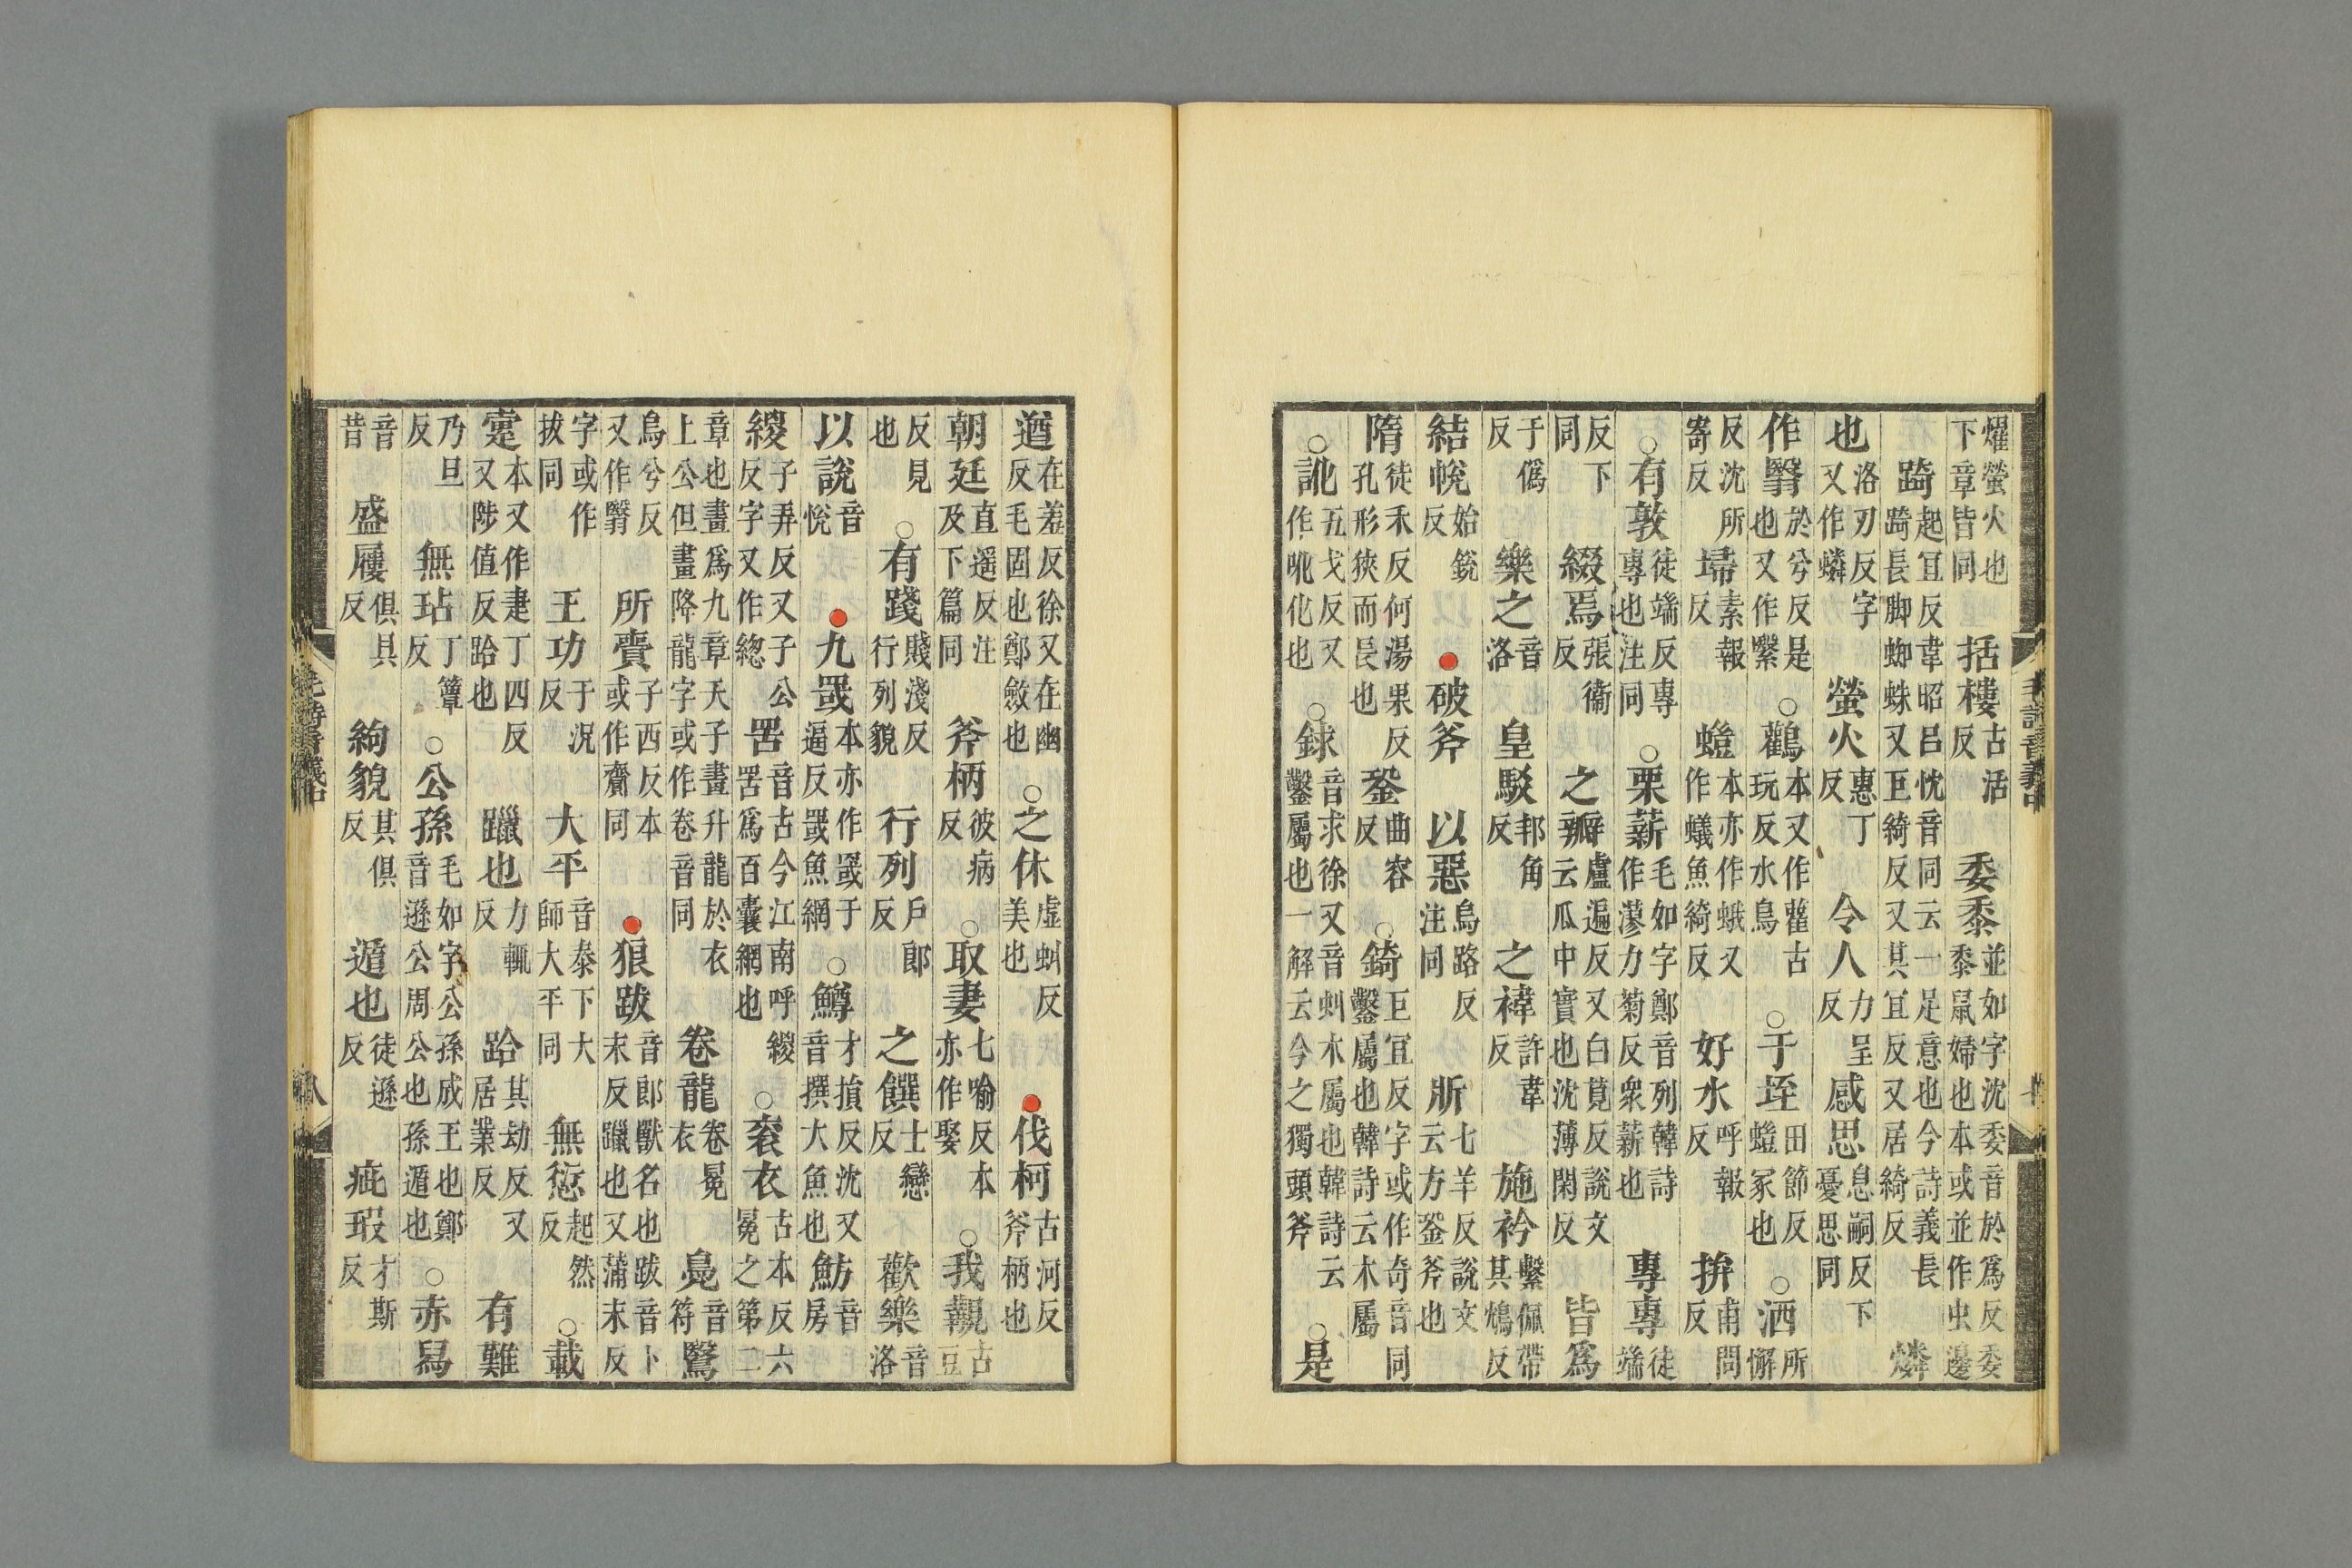 燿螢火也下章皆同 括樓古活反 委黍並如字沈委音於爲反委黍鼠婦也本或並作虫邊
踦起宜反韋昭呂忱音同云一足意也今詩義長踦長脚蜘蛛又巨綺反又其宜反又居綺反 燐
也洛刃反字又作蟒 螢火惠丁反 令人力呈反 感思息嗣反下憂思同
作翳於兮反是也又作繄 ○鸛本又作雚古玩反水鳥 ○于垤田節反螘冢也 ○洒所懈
反沈所寄反 埽素報反 螘本亦作蛾又作蟻魚綺反 好水呼報反 拚甫問反
○有敦徒端反專專也注同 ○栗薪毛如字鄭音列韓詩作蓼力菊反衆薪也 專專徒端
反下同 綴焉張衞反 之瓣盧遍反又白莧反說文云瓜中實也沈薄閑反 皆爲
于僞反 樂之音洛 皇駁邦角反 之褘許韋反 施衿繫佩帶其鴆反
結帨始銳反 ●破斧 以惡烏路反注同 斨七羊反說文云方銎斧也
隋徒禾反何湯果反孔形狹而長也 銎曲容反 ○錡巨宜反字或作奇音同鑿屬也韓詩云木屬
○訛五戈反又作吪化也 ○銶音求徐又音虯木屬也韓詩云鑿屬也一解云今之獨頭斧 ○是
遒在羞反徐又在幽反毛固也鄭斂也 ○之休虛虯反美也 ●伐柯古河反斧柄也
朝廷直遥反注及下篇同 斧柄彼病反 ○取妻七喻反本亦作娶 ○我覯古豆
反見也 ○有踐賤淺反行列貌 行列戶郎反 之饌士戀反 歡樂音洛
以說音悅 ●九罭本亦作罭于逼反罭魚網 ○鱒才損反沈又音撰大魚也 魴音房
緵子弄反又子公反字又作總 罟音古今江南呼緵罟爲百囊網也 ○衮衣古本反六冕之第二
章也畫爲九章天子畫升龍於衣上公但畫降龍字或作卷音同 卷龍卷冕衣 鳧音符 鷖
烏兮反又作翳 所賷子西反本或作齎同 ●狼跋音郎獸名也跋音卜末反躐也又蒲末反
字或作拔同 王功于況反 大平音泰下大師大平同 無愆起然反 ○載
疐本又作疌丁四反又陟值反跲也 躐也力輒反 跲其劫反又居業反 有難
乃旦反 無玷丁簟反 ○公孫毛如字公孫成王也鄭音遜公周公也孫遁也 ○赤舄
音昔 盛屨俱具反 絇貌其俱反 遁也徒遜反 疵瑕才斯反